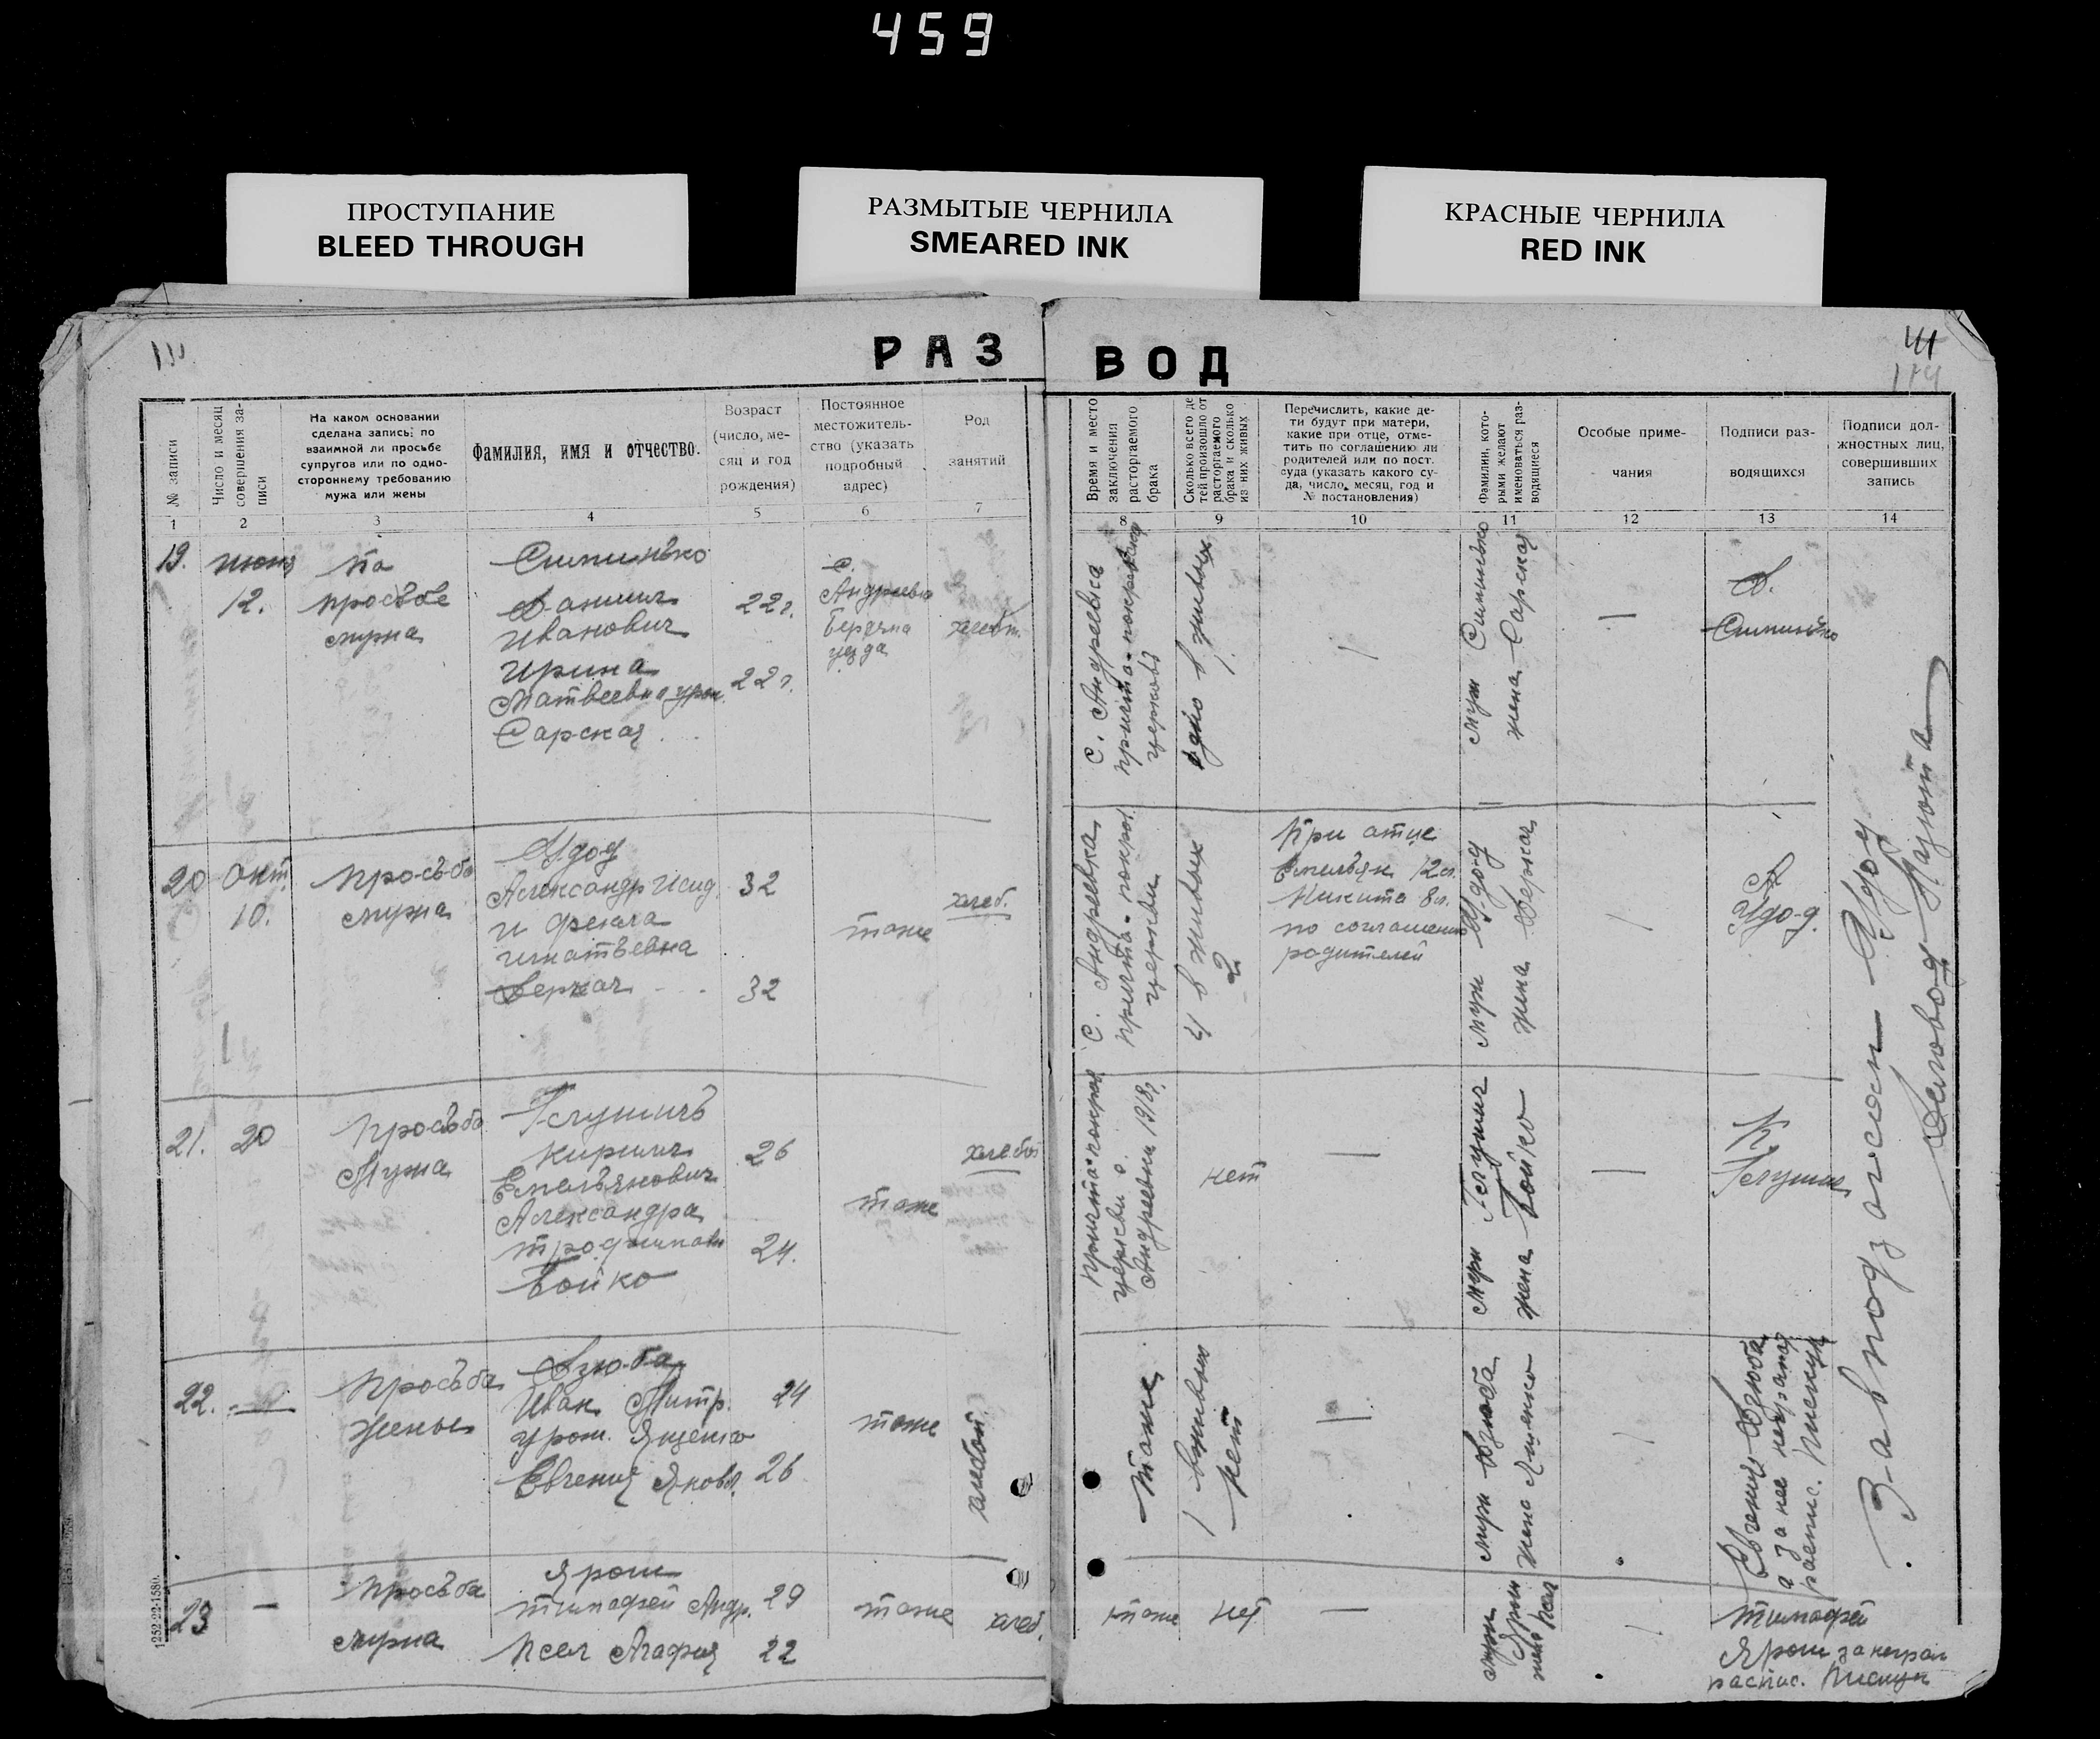 459
ПРОСТУПАНИЕ
BLEED THROUGH
РАЗМЫТЫЕ ЧЕРНИЛА
SMEARED INK
КРАСНЫЕ ЧЕРНИЛА
RED INK
РАЗ
ВОД
41
№ записи
Число и месяц
совершения за-
писи
На каком основании
сделана запись: по
взаимной ли просьбе
супругов или по одно-
стороннему требованию
мужа или жены
Фамилия, имя и отчество.
Возраст
(число, ме-
сяц и год
рождения)
Постоянное
местожитель-
ство (указать
подробный
адрес)
Род
занятий
Время и место
заключения
расторгаемого
брака
Сколько всего де
тей произошло от
расторгаемого
брака и сколько
из них живых
Перечислить, какие де-
ти будут при матери,
какие при отце, отме-
тить по соглашению ли
родителей или по пост.
суда (указать какого су-
да, число, месяц, год и
№ постановления)
Фамилии, кото-
рыми желают
именоваться раз-
водящиеся
Особые приме-
чания
Подписи раз-
водящихся
Подписи дол-
жностных лиц,
совершивших
запись
1 2 3 4 5 6 7
8 9 10 11 12 13 14
19.
июня
12.
По
просьбе
мужа
Симинько
Даниил
Иванович
22 г.
Ирина
Матвеевна урож.
22 г.
Сарская
с.
Андреевка
Бердянс
уезда
хлебп.
С. Андреевка
причта покров
церковь
одно в живых
1.
—
муж Симинько
жена Сарская
—
Д.
Симинько
20
Окт.
10.
просьба
мужа
Удод
Александр Исид.
32
и Фекла
Игнатьевна
Деркач
32
тоже
хлеб.
С. Андреевка
причта покров
церкви
4 в живых
2
При отце
Емельян 12 л.
Никита 8 л.
по соглашению
родителей
муж Удод
жена Деркач
А
Удод.
21.
20
Просьба
Мужа
Глушич
Кирилл
26
Емельянович
Александра
Трофимовн
24.
Бойко
тоже
хлебоп
Причта покров
церкви с.
Андреевки 1918 г.
нет
—
муж Глушич
жена Бойко
—
К.
Глушич
22.
Просьба
Жены
Дзюба
Иван Митр.
24
урож. Ященко
Евгения Яковл.
26
тоже
хлебоп.
тоже
1 в живых
нет
—
муж Дзюба
жена Ященко
Евгения Дзюба
а за нее неграмот
распис.
23
—
Просьба
мужа
Ярош
Тимофей Андр.
29
Псел Агафия
22
тоже
хлеб.
тоже
нет
—
муж
Ярош
жена Псел
Тимофей
Ярош за неграм
распис.
Зав подзагсом Удод
Деловод
1252-22-1580.